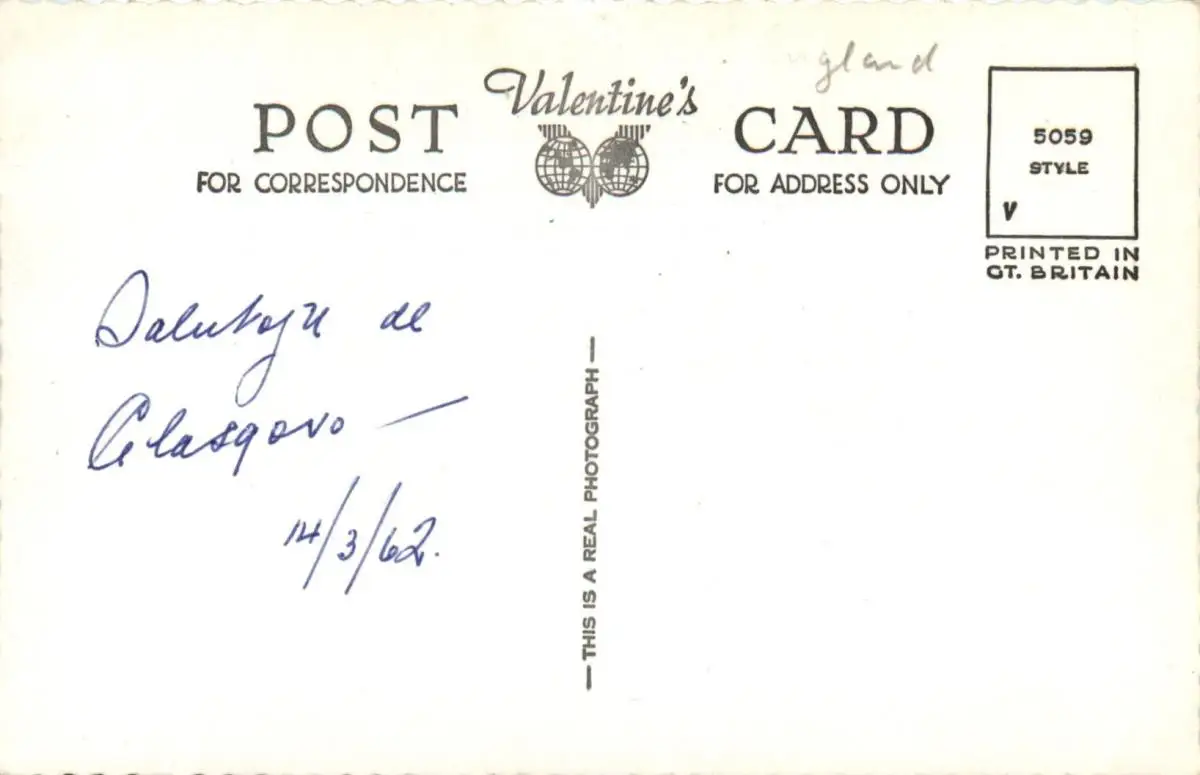 gland
Valentine's
POST CARD
FOR CORRESPONDENCE
FOR ADDRESS ONLY
5059
STYLE
V
PRINTED IN
GT. BRITAIN
Salutojn de
Glasgovo —
14/3/62.
— THIS IS A REAL PHOTOGRAPH —